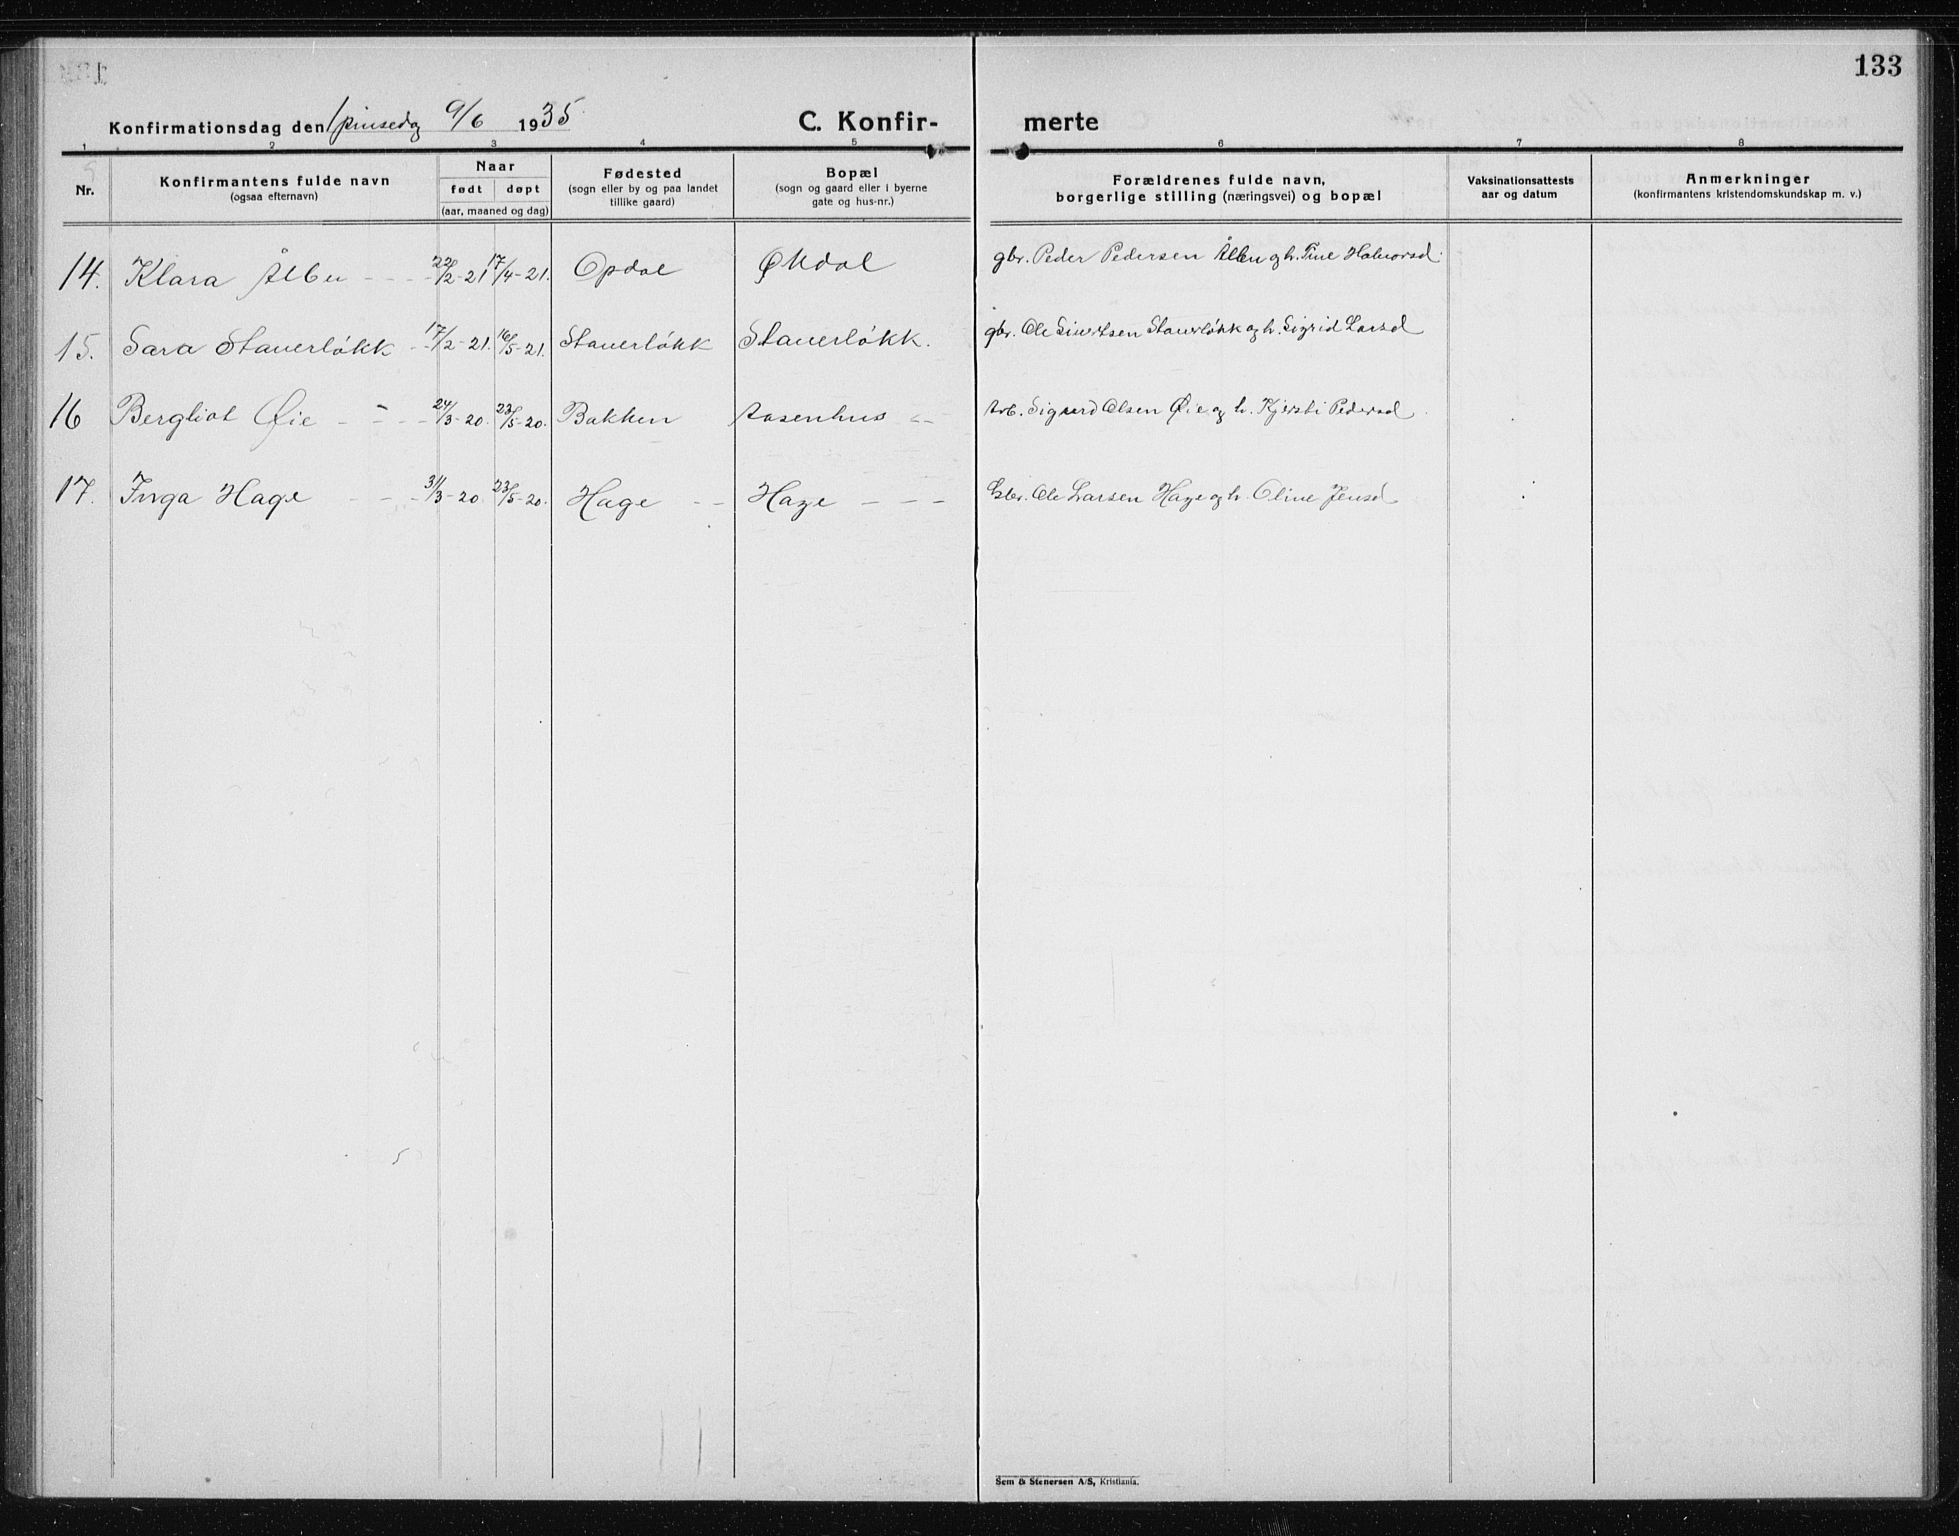 133
Konfirmationsdag den 1 pinsedag 9/6 1935 C. Konfir- merte
1 2 3 4 5 6 7 8
Nr. Konfirmantens fulde navn (ogsaa efternavn) Naar født døpt (aar, maaned og dag) Fødested (sogn eller by og paa landet tillike gaard) Bopæl (sogn og gaard eller i byerne gate og hus-nr.) Forældrenes fulde navn, borgerlige stilling (næringsvei) og bopæl Vaksinationsattests aar og datum Anmerkninger (konfirmantens kristendomskundskap m. v.)
14. Klara Ålbu 22/2-21 17/4-21. Opdal gbr. Peder Pedersen Ålbu og h. Tine Halvorsd.
15. Sara Stauerløkk 17/2-21. 16/5-21. Stauerløkk Stauerløkk. gbr. Ole Siuertsen Stauerløkk og h. Sigrid Larsd
16 Bergliot Øie 24/3-20. 23/5-20. Bakken Aasenhus Arb. Sigurd Olsen Øie og h. Kjersti Pedersd
17. Inga Hage 31/3-20. 23/5-20. Hage Hage Gbr. Ole Larsen Hage og h. Oline Jensd
Sem & Stenersen A/S, Kristiania.